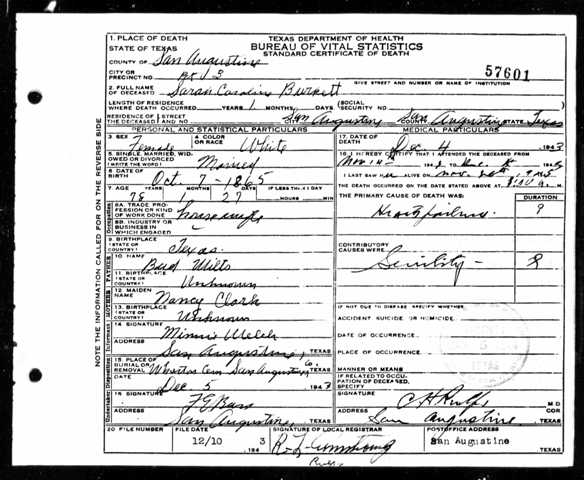 TEXAS DEPARTMENT OF HEALTH
BUREAU OF VITAL STATISTICS
STANDARD CERTIFICATE OF DEATH
1. PLACE OF DEATH
STATE OF TEXAS
COUNTY OF San Augustine
CITY OR
PRECINCT NO. 3
GIVE STREET AND NUMBER OR NAME OF INSTITUTION
57601
2. FULL NAME
OF DECEASED Sarah Caroline Burkett
LENGTH OF RESIDENCE
WHERE DEATH OCCURRED YEARS 1 MONTHS DAYS
SOCIAL
SECURITY NO.
RESIDENCE OF STREET
THE DECEASED AND NO. San Augustine San Augustine STATE Texas
PERSONAL AND STATISTICAL PARTICULARS
3. SEX Female
4. COLOR
OR RACE White
5. SINGLE, MARRIED, WID-
OWED OR DIVORCED
(WRITE IN) Married
6. DATE OF
BIRTH Oct. 7 - 1865
7. AGE YEARS 78 MONTHS DAYS 27 IF LESS THAN 1 DAY
HOURS MIN
8A. TRADE, PROFES-
SION OR KIND
OF WORK DONE housewife
8B. INDUSTRY OR
BUSINESS IN
WHICH ENGAGED
9. BIRTHPLACE
(STATE OR
COUNTRY) Texas
10. NAME Bud Wilts
11. BIRTHPLACE
(STATE OR
COUNTRY) Unknown
12. MAIDEN
NAME Nancy Clark
13. BIRTHPLACE
(STATE OR
COUNTRY) Unknown
14. SIGNATURE Minnie Welch
ADDRESS San Augustine, TEXAS
15. PLACE OF
BURIAL OR
REMOVAL Wharton Cem San Augustine, TEXAS
DATE Dec 5 1943
16. SIGNATURE
ADDRESS San Augustine, TEXAS
MEDICAL PARTICULARS
17. DATE OF
DEATH Dec 4 1943
18. I HEREBY CERTIFY THAT I ATTENDED THE DECEASED FROM
I LAST SAW ALIVE ON
THE DEATH OCCURRED ON THE DATE STATED ABOVE AT M.
THE PRIMARY CAUSE OF DEATH WAS: DURATION
Heart failure ?
CONTRIBUTORY
CAUSES WERE
Senility -
IF NOT DUE TO DISEASE SPECIFY WHETHER:
ACCIDENT SUICIDE OR HOMICIDE
DATE OF OCCURRENCE
PLACE OF OCCURRENCE
MANNER OR MEANS
IF RELATED TO OCCU-
PATION OF DECEASED,
SPECIFY
SIGNATURE M D
ADDRESS San Augustine COR
TEXAS
20 FILE NUMBER
FILE DATE
12/10 1943
SIGNATURE OF LOCAL REGISTRAR
R. L. Armstrong
POSTOFFICE ADDRESS
San Augustine
NOTE THE INFORMATION CALLED FOR ON THE REVERSE SIDE